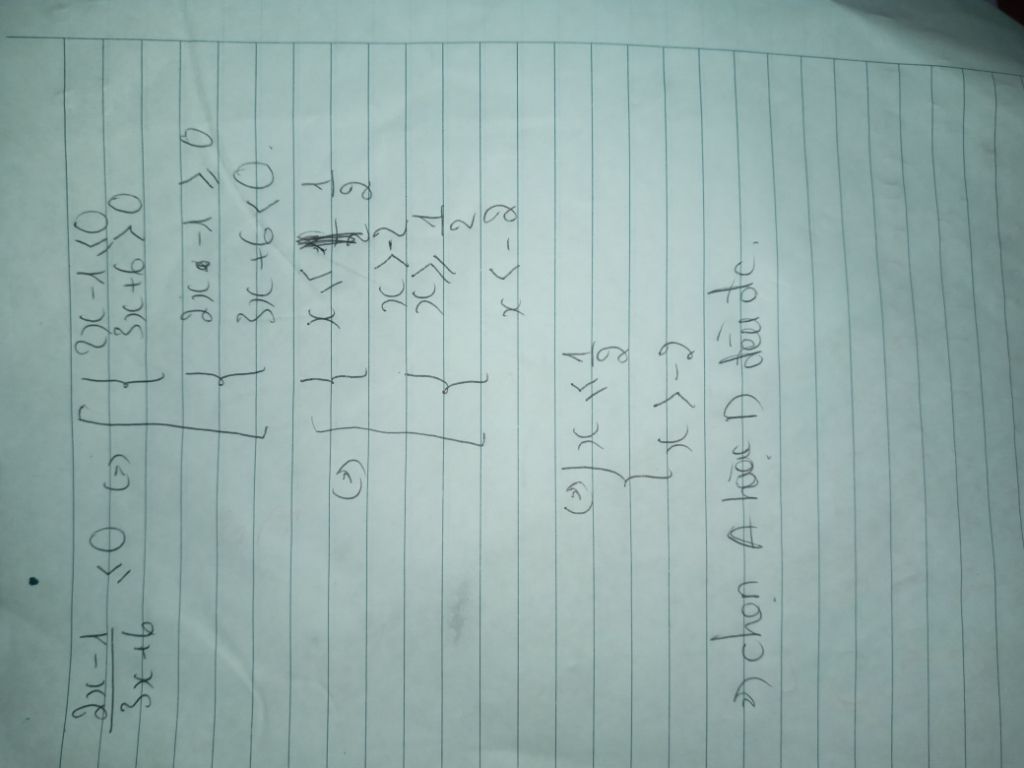 2x-1 / 3x+6 ≤ 0 (=) [ { 2x-1 ≤ 0
3x+6 > 0
{ 2x-1 ≥ 0
3x+6 < 0.
(=) [ { x ≤ 1/2
x > -2
{ x ≥ 1/2
x < -2
(=) { x ≤ 1/2
x > -2
=) chọn A hoặc D đều đc.